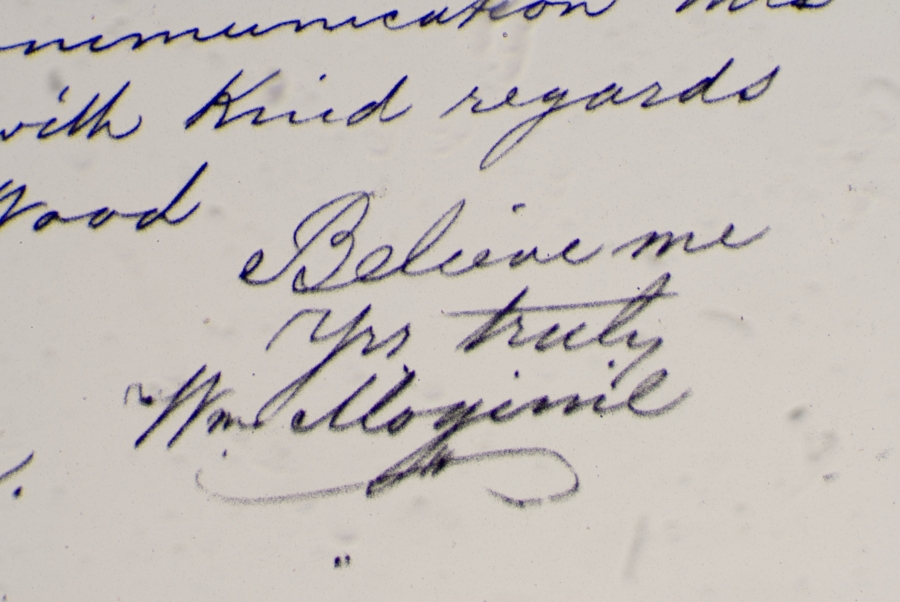 communication Mrs
with Kind regards
Wood
Believe me
Yrs truly
Wm Mogimil